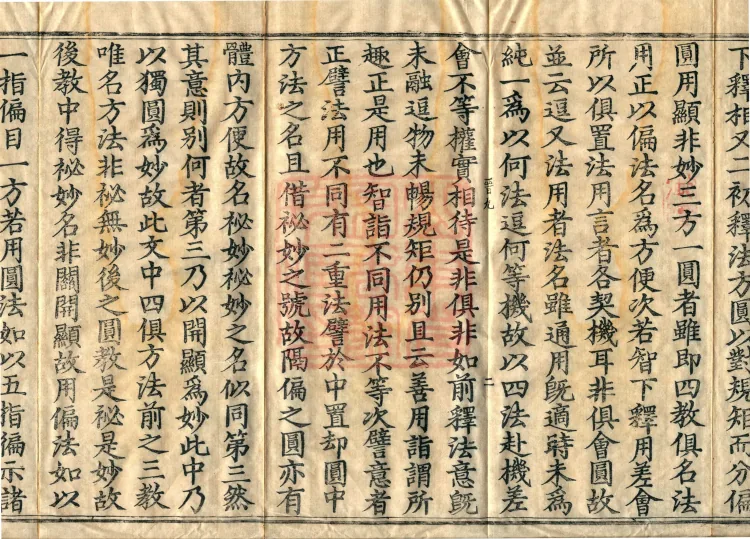 下釋相又二初釋法方圓以對規矩而分偏
圓用顯非妙三方一圓者雖即四教俱名法
用正以偏法名爲方便次若智下釋用差會
所以俱置法用言者各契機耳非俱會圓故
並云逗又法用者法名雖通用旣適時未爲
純一爲以何法逗何等機故以四法赴機差
會不等權實相待是非俱非如前釋法意旣
未融逗物未暢規矩仍别且云善用詣謂所
趣正是用也智詣不同用法不等次譬意者
正譬法用不同有二重法譬於中置却圓中
方法之名且借祕妙之號故隔偏之圓亦有
體内方便故名祕妙祕妙之名似同第三然
其意則别何者第三乃以開顯爲妙此中乃
以獨圓爲妙故此文中四俱方法前之三教
唯名方法非祕無妙後之圓教是祕是妙故
後教中得祕妙名非關開顯故用偏法如以
一指偏目一方若用圓法如以五指徧示諸
二